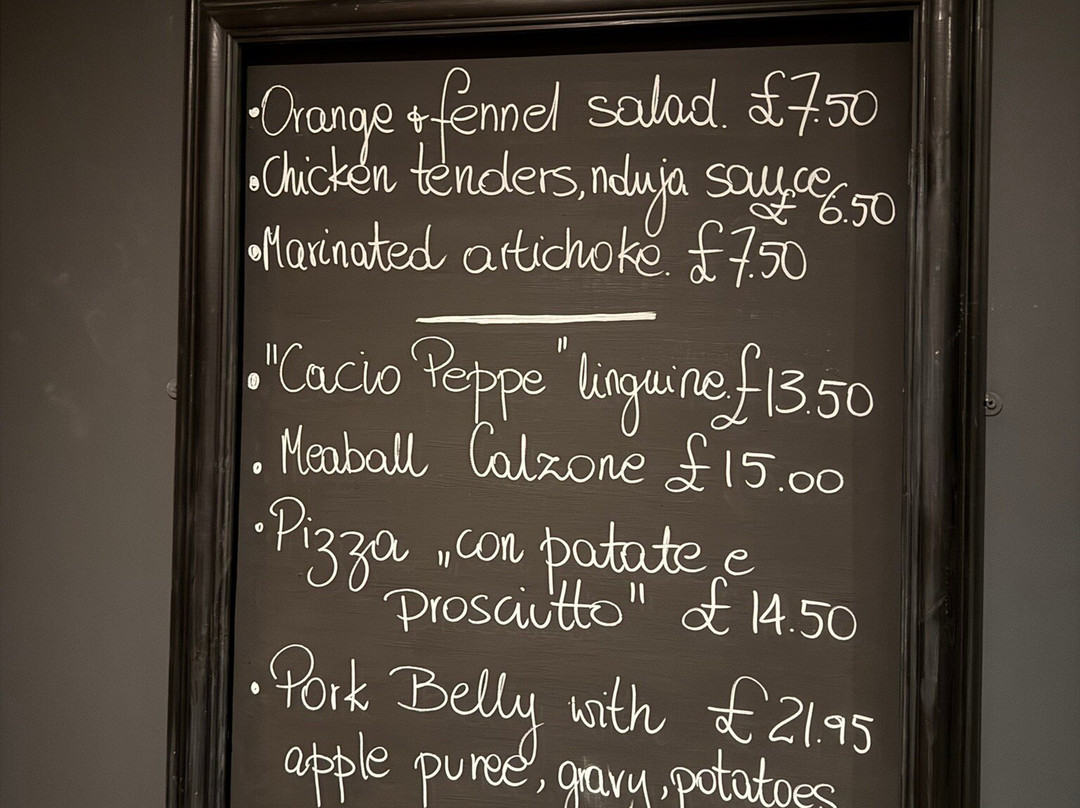 •Orange & fennel salad. £7.50
•Chicken tenders, nduja sauce
£6.50
•Marinated artichoke. £7.50
•"Cacio Peppe" linguine. £13.50
• Meaball Calzone £15.00
•Pizza „con patate e
prosciutto" £14.50
• Pork Belly with £21.95
apple puree, gravy, potatoes